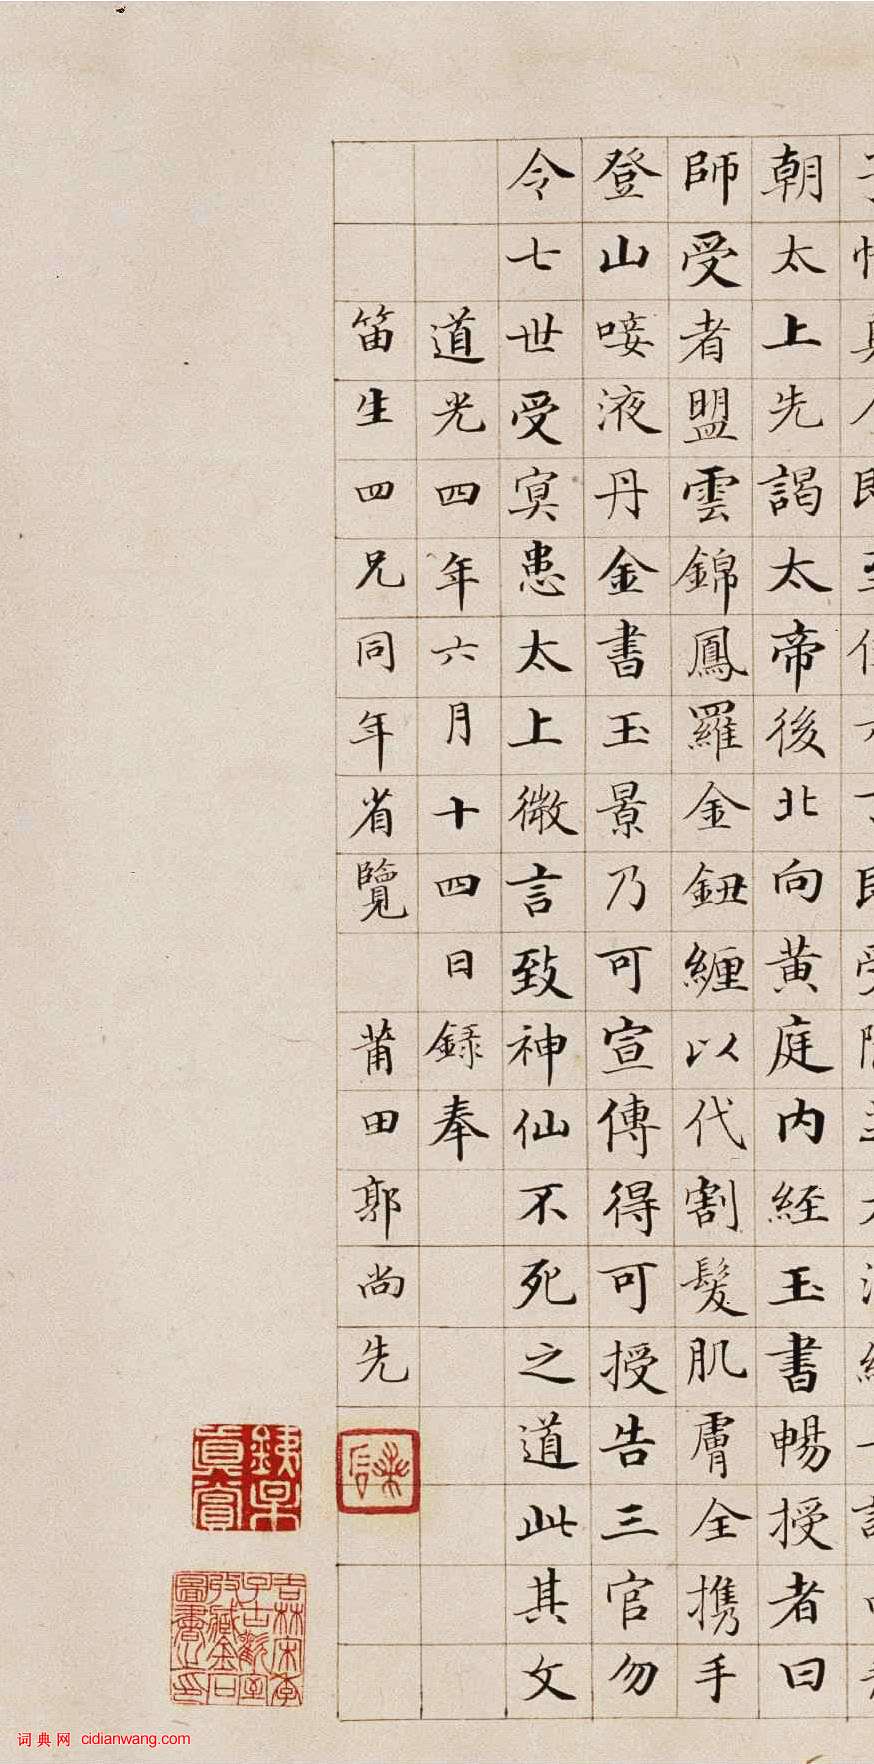 朝太上先謁太帝後北向黄庭内経玉書暢授者曰
師受者盟雲錦鳳羅金鈕纏以代割髮肌膚全携手
登山唼液丹金書玉景乃可宣傳得可授告三官勿
令七世受㝠患太上微言致神仙不死之道此其文
道光四年六月十四日録奉
笛生四兄同年省覽 莆田郭尚先
鐵某真賞
吉林宋季子古歡室收藏金石圖書之印
词典网 cidianwang.com